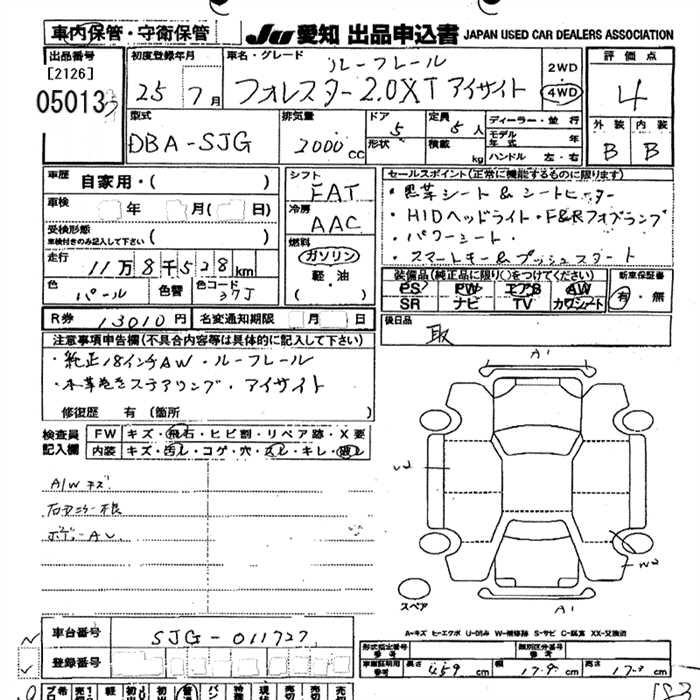 車内保管・守衛保管 JU 愛知 出品申込書 JAPAN USED CAR DEALERS ASSOCIATION
出品番号 初度登録年月 車名・グレード ルーフレール 2WD 評価点
[2126] 25 7月 フォレスター 2.0XT アイサイト 4WD 4
05013
型式 排気量 ドア 5 定員 5人 ディーラー・並行 外装 内装
DBA-SJG 2000cc 形状 積載 kg モデル年式 年 B B
ハンドル 左・右
車歴 自家用・( ) シフト FAT セールスポイント(正常に機能するものに限ります)
車検 年 月( 日) 冷房 AAC ・黒革シート&シートヒーター
受検形態 ・HIDヘッドライト・F&Rフォグランプ
車検付きのみ記入して下さい ( ) 燃料 ・パワーシート・
走行 11万8千528km ガソリン ・スマートキー&プッシュスタート
色 パール 色替 色コード 37J 軽・油 ( )
装備品(純正品に限り○をつけてください) 新車保証書
PS PW エアB AW 有・無
SR ナビ TV カワシート
R券 13010円 名変通知期限 月 日 後日品 取
注意事項申告欄(不具合内容等は具体的に記入して下さい)
・純正18インチAW・ルーフレール
・本革巻きステアリング・アイサイト
修復歴 有 (箇所 )
検査員記入欄 FW キズ・飛石・ヒビ割・リペア跡・X要
内装 キズ・汚レ・コゲ・穴・スレ・キレ・破レ
A/W キズ
A1
W2
A1
スペア
A-キズ E-エクボ U-凹み W-補修跡 S-サビ C-腐食 XX-交換済
車台番号 SJG-011727 形式指定番号 参考 類別区分番号 参考
登録番号 車庫証明用参考 長さ 459cm 幅 179cm 高さ